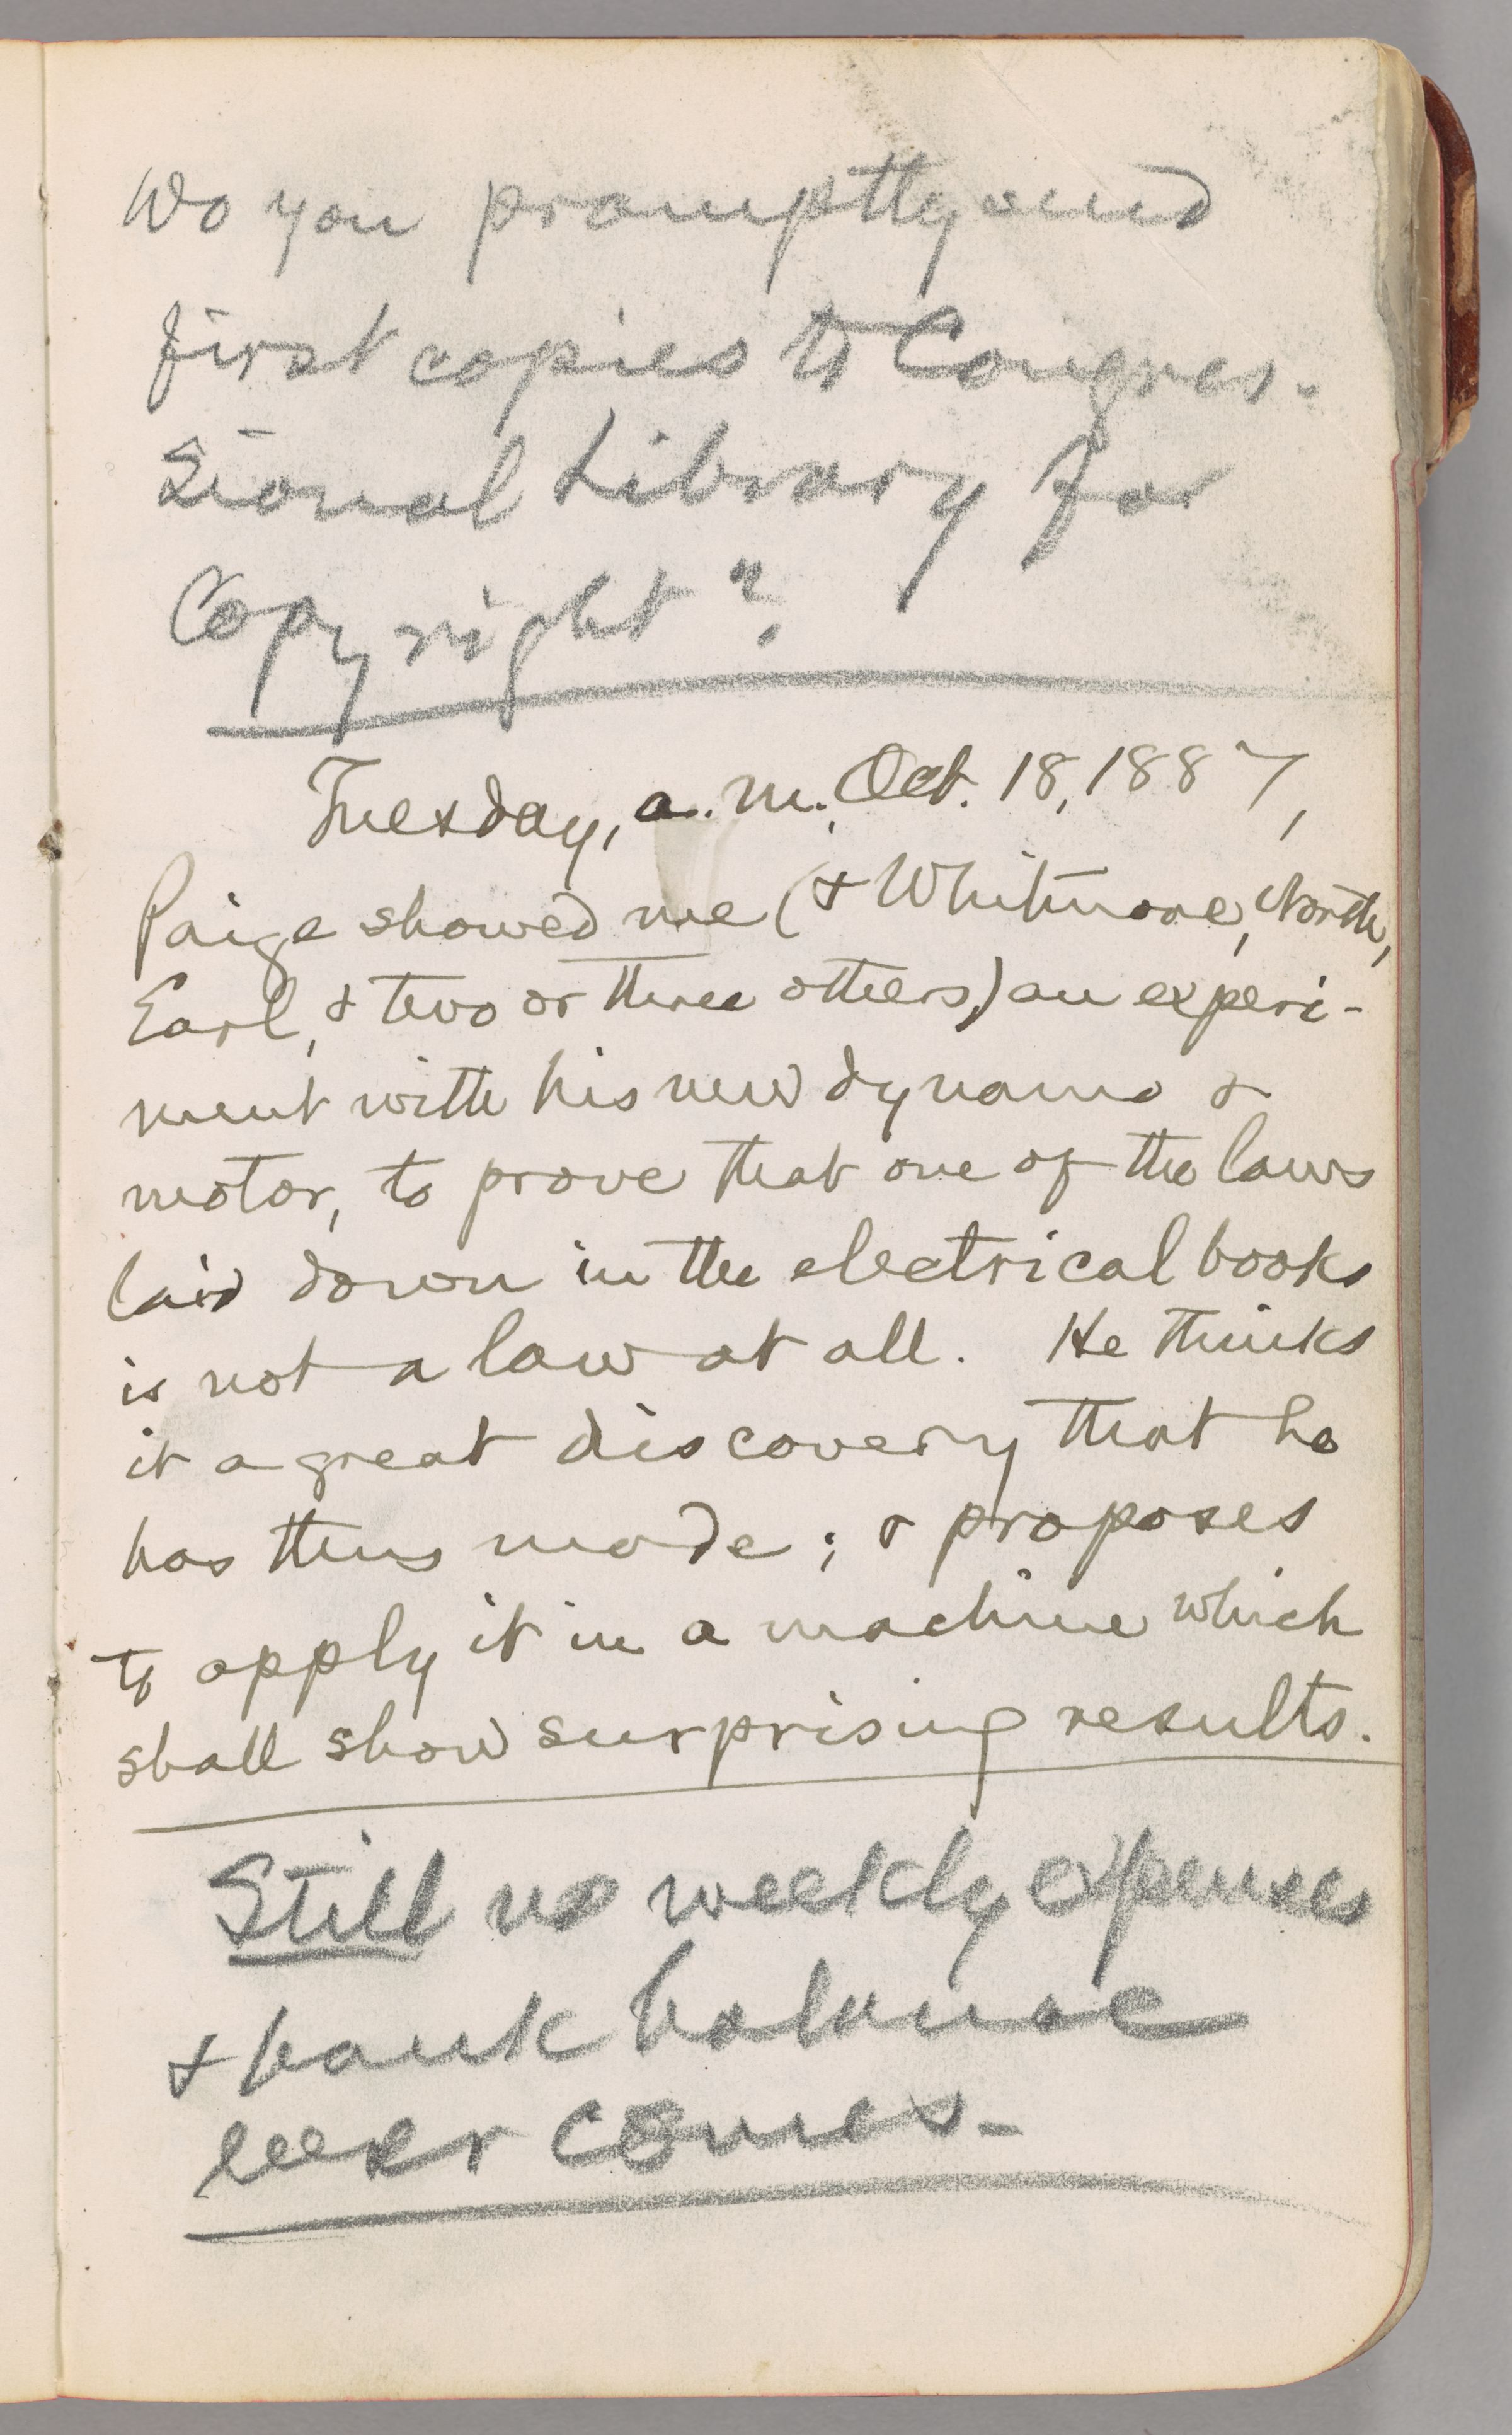 Do you promptly send
first copies to Congres-
sional Library for
Copyright?
Tuesday, a.m., Oct. 18, 1887,
Paige showed me (& Whitmore, North,
Earl, & two or three others,) an experi-
ment with his new dynamo &
motor, to prove that one of the laws
laid down in the electrical books
is not a law at all. He thinks
it a great discovery that he
has thus made; & proposes
to apply it in a machine which
shall show surprising results.
Still no weekly expenses
& bank balance
ever comes.